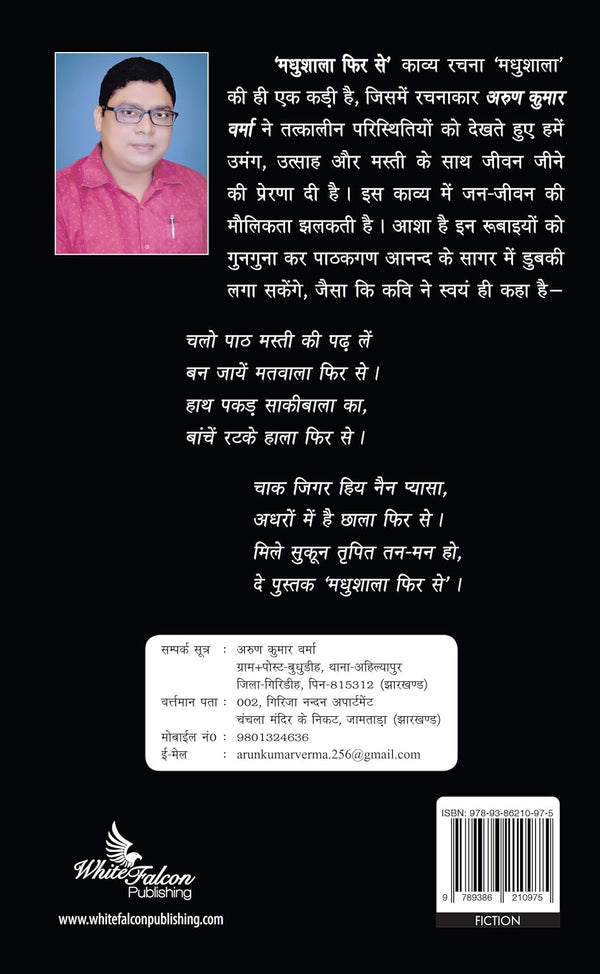 ‘मधुशाला फिर से’ काव्य रचना ‘मधुशाला’
की ही एक कड़ी है, जिसमें रचनाकार अरुण कुमार
वर्मा ने तत्कालीन परिस्थितियों को देखते हुए हमें
उमंग, उत्साह और मस्ती के साथ जीवन जीने
की प्रेरणा दी है। इस काव्य में जन-जीवन की
मौलिकता झलकती है। आशा है इन रूबाइयों को
गुनगुना कर पाठकगण आनन्द के सागर में डुबकी
लगा सकेंगे, जैसा कि कवि ने स्वयं ही कहा है–
चलो पाठ मस्ती की पढ़ लें
बन जायें मतवाला फिर से।
हाथ पकड़ साकीबाला का,
बांचें रटके हाला फिर से।
चाक जिगर हिय नैन प्यासा,
अधरों में है छाला फिर से।
मिले सुकून तृपित तन-मन हो,
दे पुस्तक ‘मधुशाला फिर से’।
सम्पर्क सूत्र : अरुण कुमार वर्मा
ग्राम+पोस्ट-बुधुडीह, थाना-अहिल्यापुर
जिला-गिरिडीह, पिन-815312 (झारखण्ड)
वर्त्तमान पता : 002, गिरिजा नन्दन अपार्टमेंट
चंचला मंदिर के निकट, जामताड़ा (झारखण्ड)
मोबाईल नं० : 9801324636
ई-मेल : arunkumarverma.256@gmail.com
ISBN: 978-93-86210-97-5
9 789386 210975
FICTION
White Falcon
Publishing
www.whitefalconpublishing.com